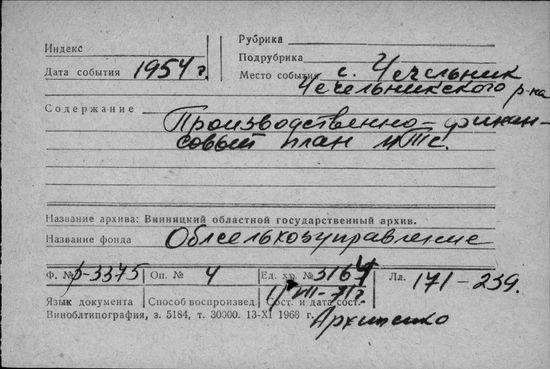 Индекс
Рубрика
Подрубрика
Дата события 1954 г.
Место события с. Чечельник
Чечельникского р-на
Содержание Производственно-финан-
совый план МТС.
Название архива: Винницкий областной государственный архив.
Название фонда Облсельхозуправление
Ф. № р-3375 Оп. № 4 Ед. хр. № 3164 Лл. 171-239.
Язык документа Способ воспроизвед. Сост. и дата сост.
Архипенко
Виноблтипография, з. 5184, т. 30000. 13-XI 1968 г.